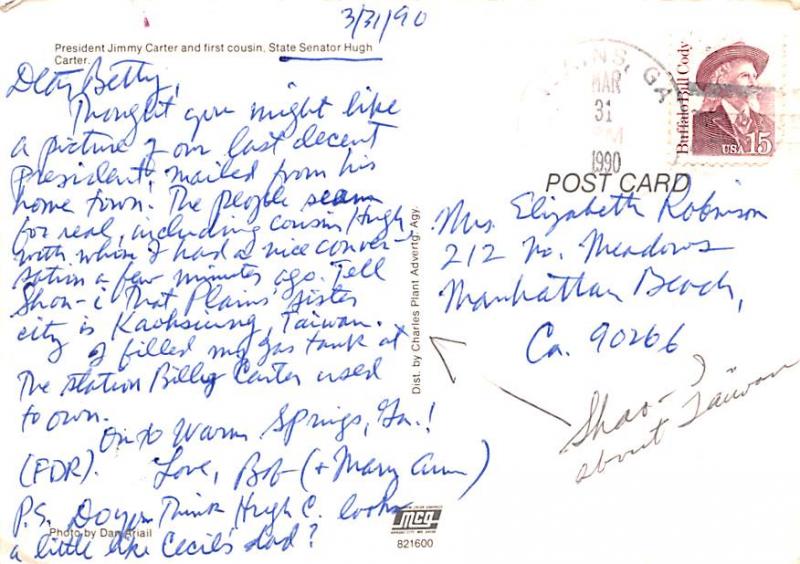 3/31/90
President Jimmy Carter and first cousin, State Senator Hugh
Carter.
Dear Betty,
Thought you might like
a picture of our last decent
President, mailed from his
home town. The people seem
for real, including cousin Hugh
with whom I had a nice conver-
sation a few minutes ago. Tell
Shao-i that Plains' sister
city is Kaohsiung, Taiwan.
I filled my gas tank at
the station Billy Carter used
to own.
On to Warm Springs, Ga.!
(FDR). Love, Bob (+ Mary Ann)
P.S. Do you think Hugh C. looks
a little like Cecil's dad?
Photo by Dan Ariail
Dist. by Charles Plant Advertg. Agy.
mcg
821600
PLAINS, GA
MAR
31
PM
1990
Buffalo Bill Cody
USA 15
POST CARD
Mrs. Elizabeth Robinson
212 No. Meadows
Manhattan Beach,
Ca. 90266
Shao-i
about Taiwan